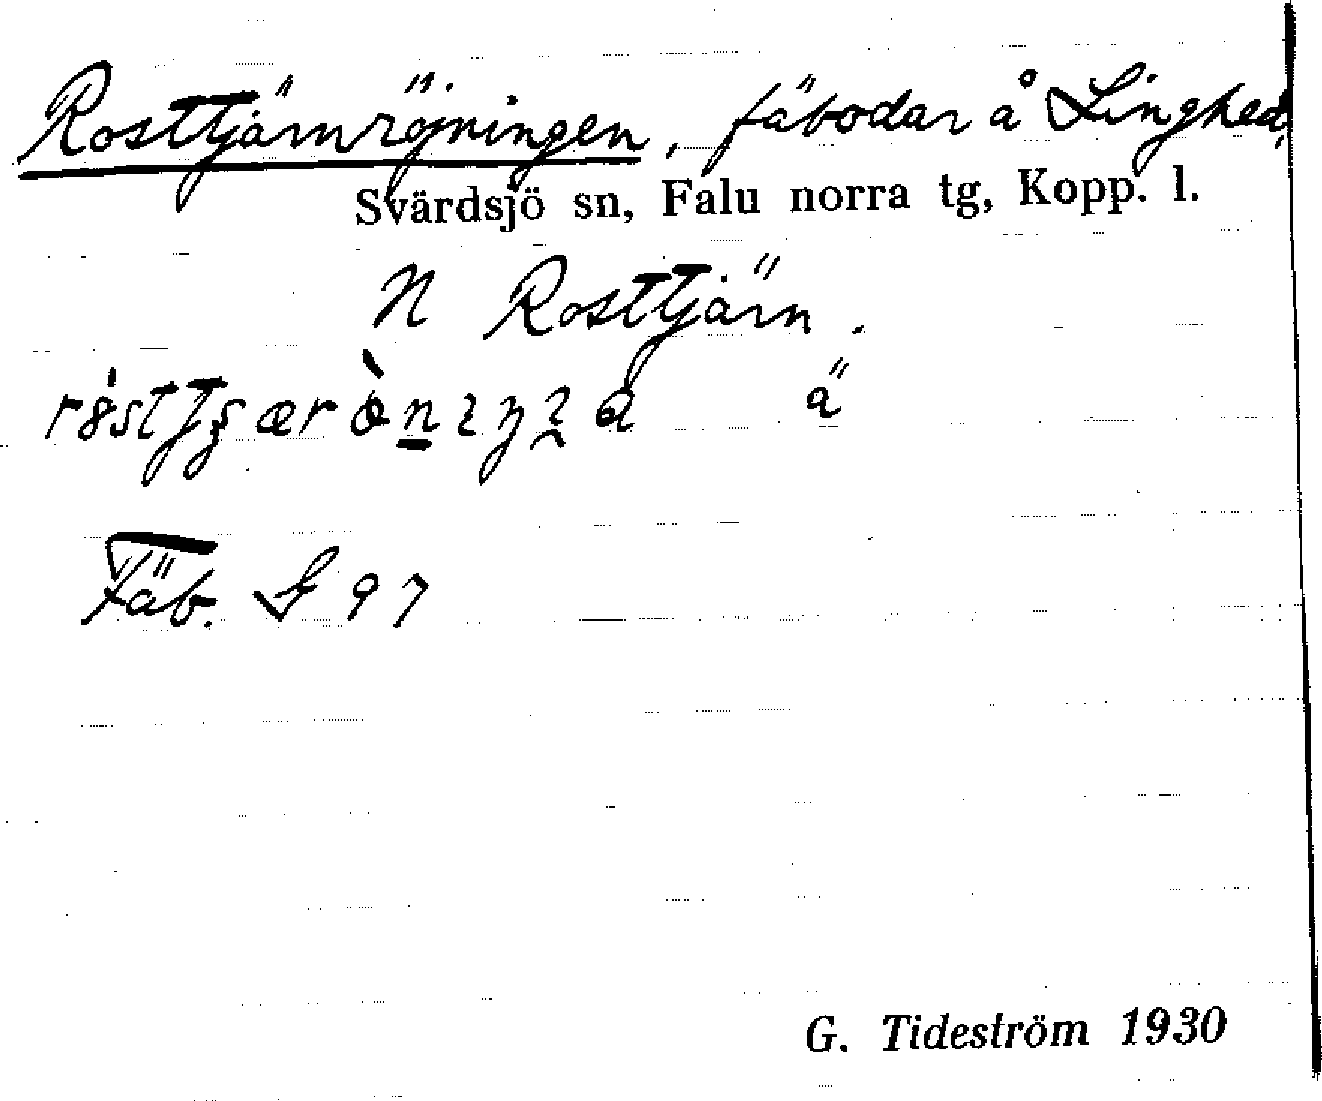 Rosttjärnröjningen, fäbodar å Linghed,
Svärdsjö sn, Falu norra tg, Kopp. l.
N Rosttjärn.
ä
Fäb. G 97
G. Tideström 1930